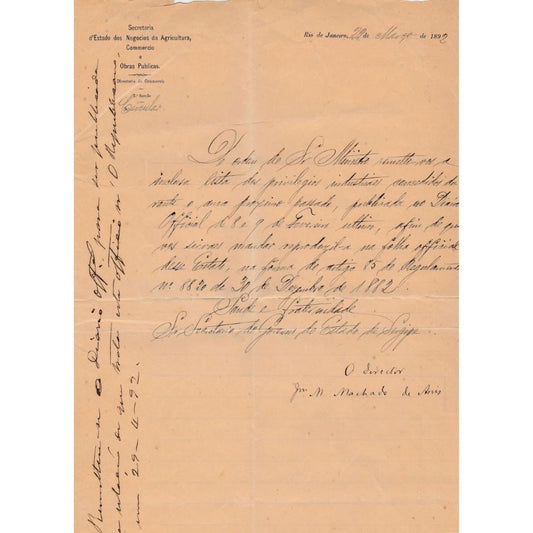 Secretaria
d'Estado dos Negocios da Agricultura,
Commercio
e
Obras Publicas.
Directoria do Commercio
2ª Secção
Circular
Rio de Janeiro, 29 de Março de 1892
De ordem do Sr Ministro remetto-vos a
inclusa lista dos privilegios industriaes concedidos du
rante o anno proximo passado, publicada no Diario
Official de 8 e 9 de Fevereiro ultimo, afim de que
vos sirvaes mandar reproduzil-a na folha official
desse Estado, na forma do artigo 85 do Regulamento
nº 8820 de 30 de Dezembro de 1882.
Saude e Fraternidade
Sr. Secretario do Governo do Estado de Sergipe.
O director
M. Machado de Assis
Remetteu-se o Diario Offal. para ser publicada
a relação de que trata este officio n'O Republicano
em 29-4-92.